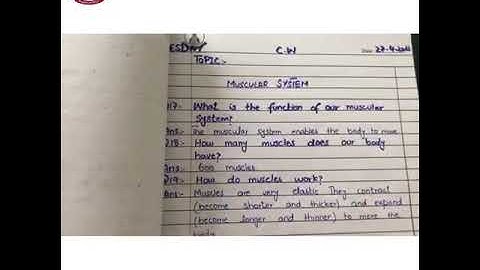 ESDAY C.W Date 27-4-
TOPIC:-
MUSCULAR SYSTEM
Q17:- What is the function of our muscular
System?
Ans:- The muscular system enables the body to move
Q18:- How many muscles does our body
have?
Ans:- 600 muscles
Q19:- How do muscles work?
Ans:- Muscles are very elastic They contract
(become shorter and thicker) and expand
(become longer and thinner) to move the
body